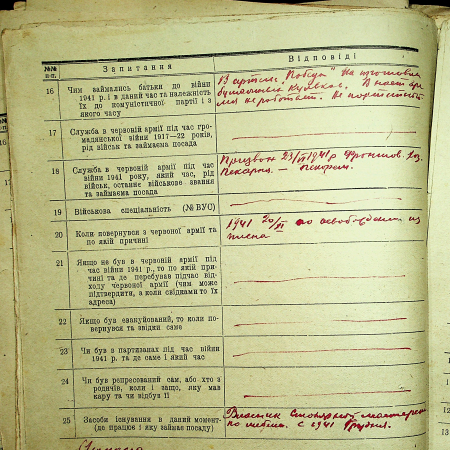 №№ п-п. Запитання Відповіді
16 Чим займались батьки до війни
1941 р. і в даний час та належність
їх до комуністичної партії і з
якого часу
В артели "Победа" на изготовке
бумажных В наст. время
не работает. Не партийный
17 Служба в червоній армії під час гро-
мадянської війни 1917—22 років,
рід військ та займаєма посада
18 Служба в червоній армії під час
війни 1941 року, який час, рід
військ, останнє військове звання
та займаєма посада
Призван 23/VI 1941 р Фронтов. хоз.
Пекарня — пекарем.
19 Військова спеціальність (№ ВУС)
20 Коли повернувся з червоної армії та
по якій причині
1941 20/XI по освобождении из
плена
21 Якщо не був в червоній армії під
час війни 1941 р., то по якій при-
чині та де перебував підчас від-
ходу червоної армії (чим може
підтвердити, а коли свідками то їх
адреса)
22 Якщо був евакуйований, то коли по-
вернувся та звідки саме
23 Чи був в партизанах під час війни
1941 р. та де саме і який час
24 Чи був репресований сам, або хто з
родичів, коли і защо, яку мав
кару та чи відбув її
25 Засоби існування в даний момент-
(де працює і яку займає посаду)
Власник столярної мастерні
по мебли. с 1941 Грудня.